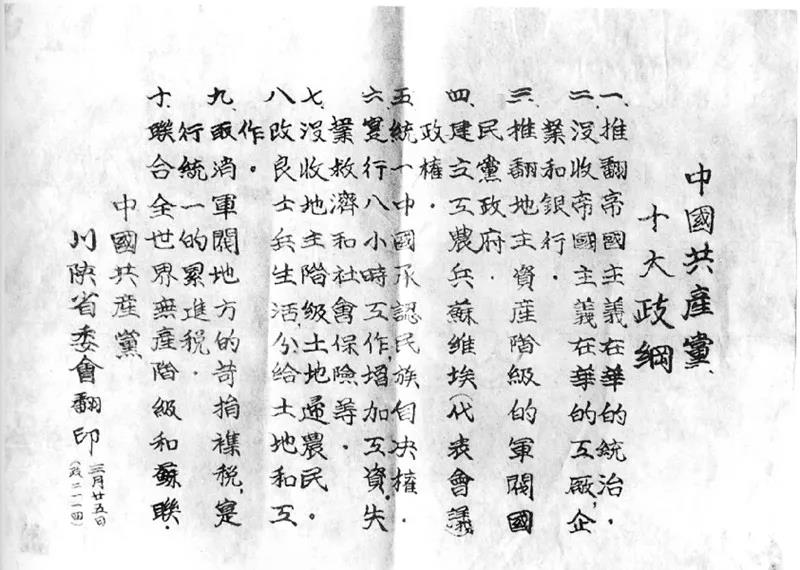 中國共產黨
十大政綱
一、推翻帝國主義在華的統治．
二、沒收帝國主義在華的工廠，企
業和銀行．
三、推翻地主資產階級的軍閥國
民黨政府．
四、建立工農兵蘇維埃(代表會議)
政權．
五、統一中國承認民族自决權．
六、寔行八小時工作，增加工資，失
業救濟和社會保險等．
七、沒收地主階級土地農民。
八、改良士兵生活，分給土地和工
作。
九、取消軍閥地方的苛捐襍税，寔
行統一的累進税．
十、聯合全世界無產階級和蘇聯．
中國共產黨
川陝省委會翻印
三月廿五日
(政二一一四)